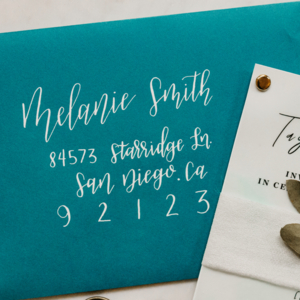 Melanie Smith
84573 Starridge Ln.
San Diego, Ca
9 2 1 2 3
Tay
IN
IN CE